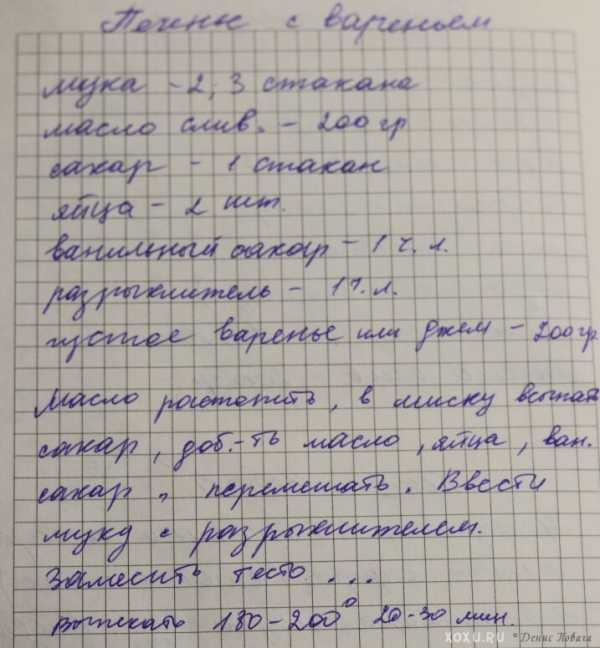 Печенье с вареньем
мука - 2, 3 стакана
масло слив. - 200 гр
сахар - 1 стакан
яйца - 2 шт.
ванильный сахар - 1 ч. л.
разрыхлитель - 1 ч. л.
густое варенье или джем - 200 гр
Масло растопить, в миску всыпать
сахар, доб.-ть масло, яйца, ван.
сахар, перемешать. Ввести
муку с разрыхлителем.
Замесить тесто...
выпекать 180-200° 20-30 мин.
XOXU.RU * Денис Повага